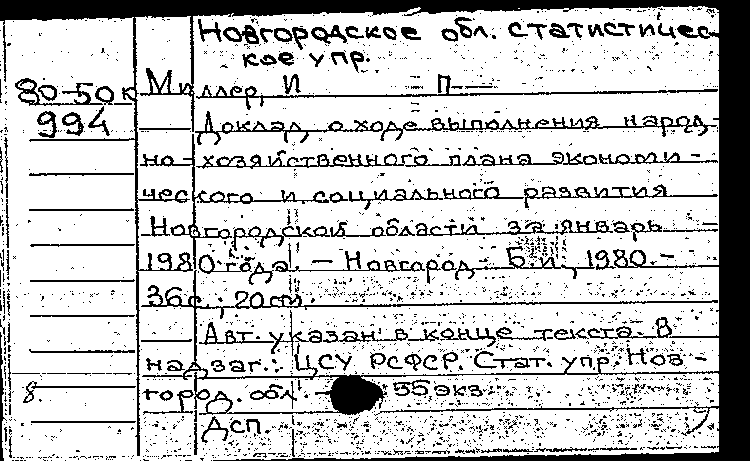 Новгородское обл. статистичес-
кое упр.
80-50к Миллер, И П
994 Доклад о ходе выполнения народ-
но-хозяйственного плана экономи-
ческого и социального развития
Новгородской области за январь -
1980 года. - Новгород: Б.и., 1980. -
36с.; 20см.
Авт. указан в конце текста. В
надзаг.: ЦСУ РСФСР. Стат. упр. Нов-
8. город. обл. - 55экз.
Дсп.